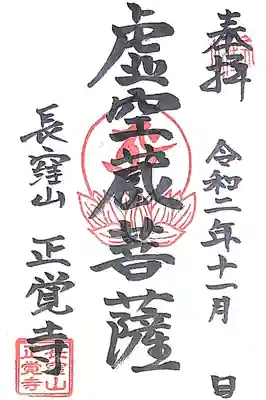 奉拝
令和二年十一月 日
虚空蔵菩薩
長窪山 正覚寺
長窪山
正覚寺